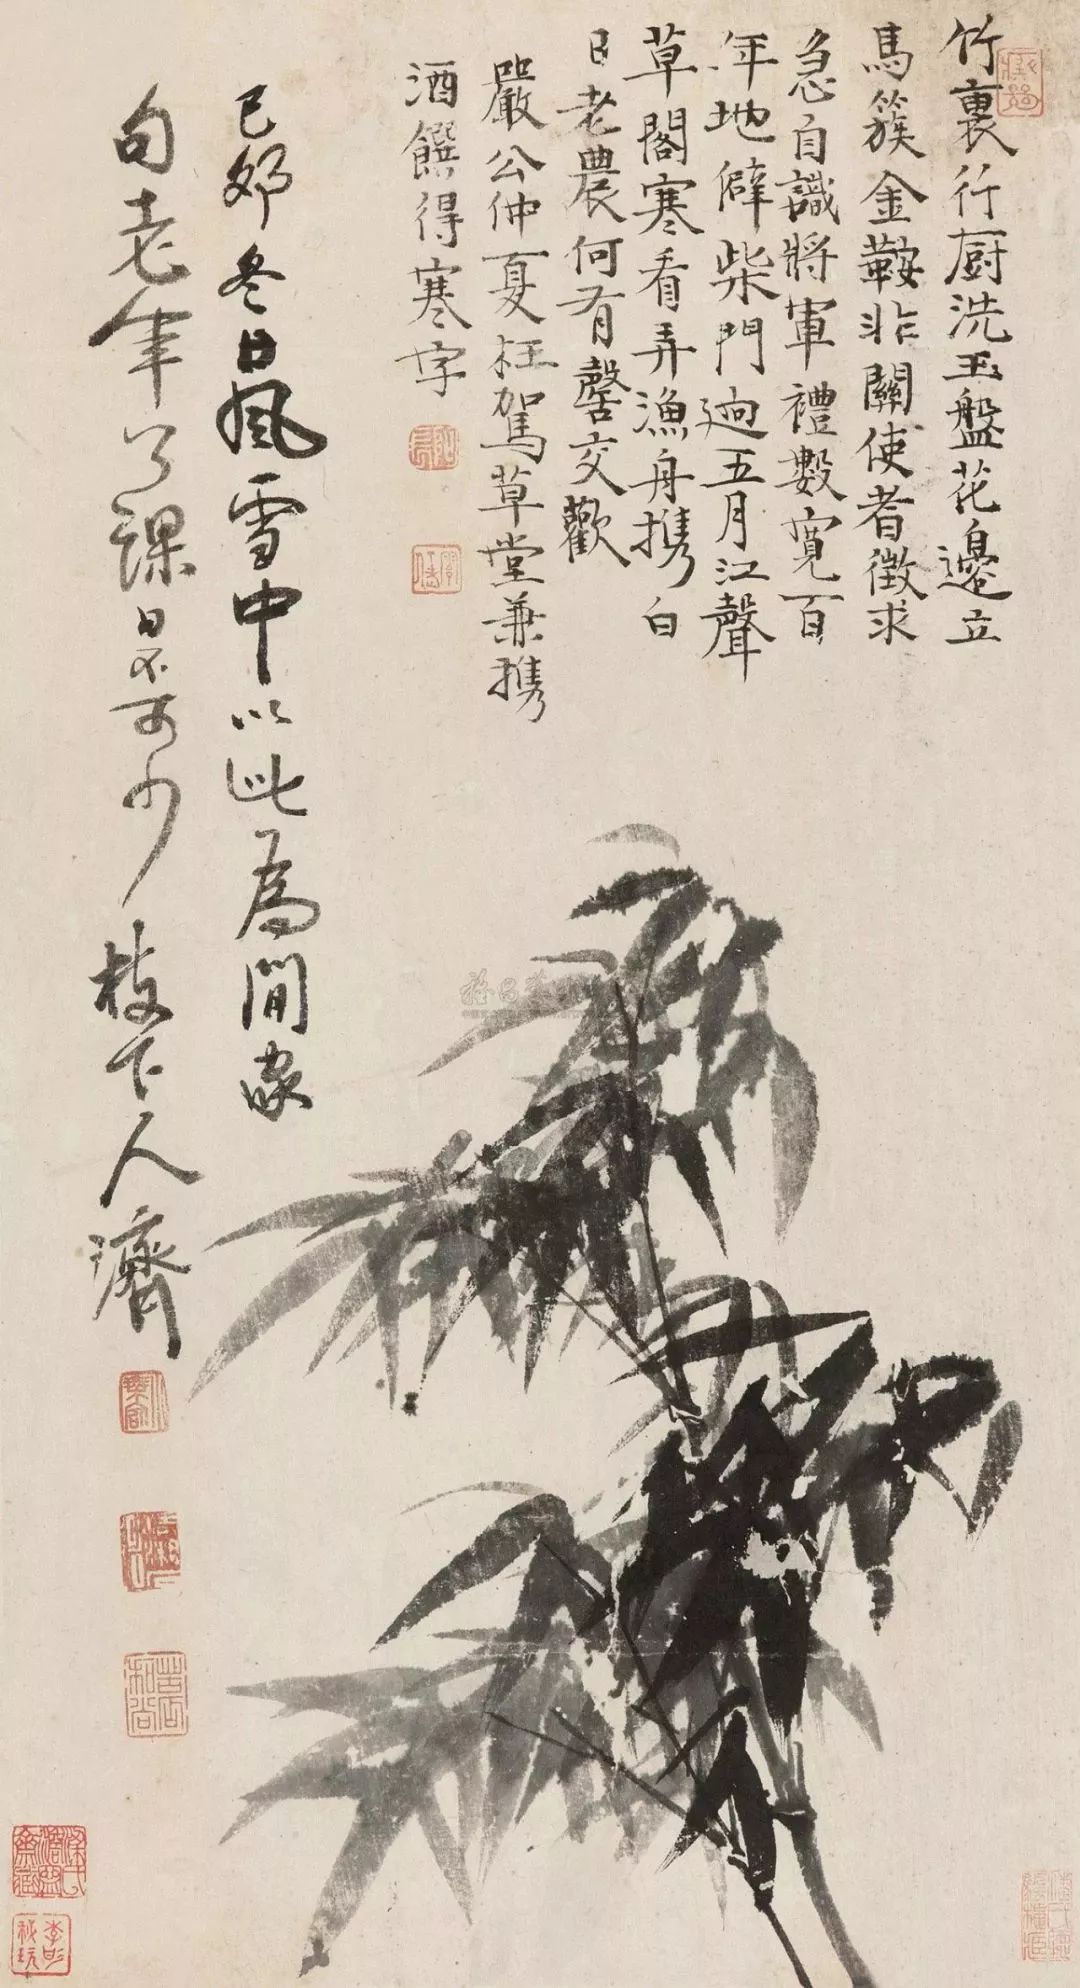 竹裏行廚洗玉盤花邊立
馬簇金鞍非關使者徵求
急自識將軍禮數寬百
年地僻柴門迥五月江聲
草閣寒看弄漁舟携白
日老農何有罄交歡
嚴公仲夏枉駕草堂兼携
酒饌得寒字
己卯冬日風雪中以此為閒家
句老年了課日不可少
枝下人濟
苦瓜和尚